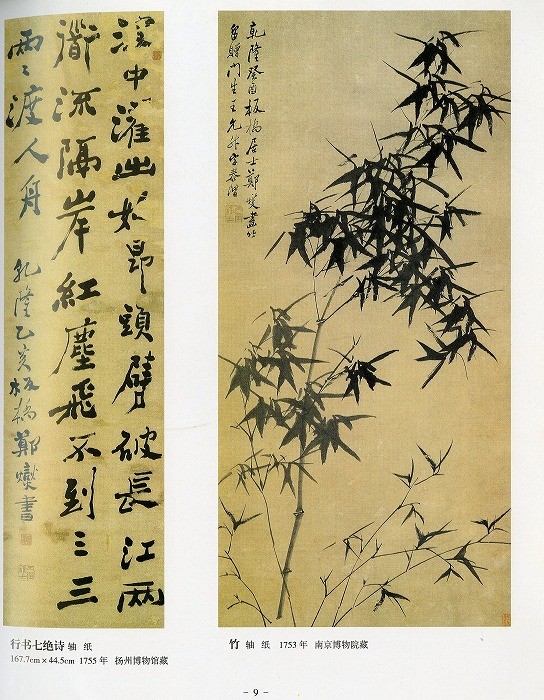 中濯出如昂頭劈破長江兩
衜流隔岸紅塵飛不到三三
兩〻渡人舟
乾隆乙亥板橋鄭燮書
乾隆癸酉板橋居士鄭燮畫竹
留贈門生王允升字泰階
行书七绝诗 轴 纸
167.7cm×44.5cm 1755 年 扬州博物馆藏
竹 轴 纸 1753 年 南京博物院藏
- 9 -